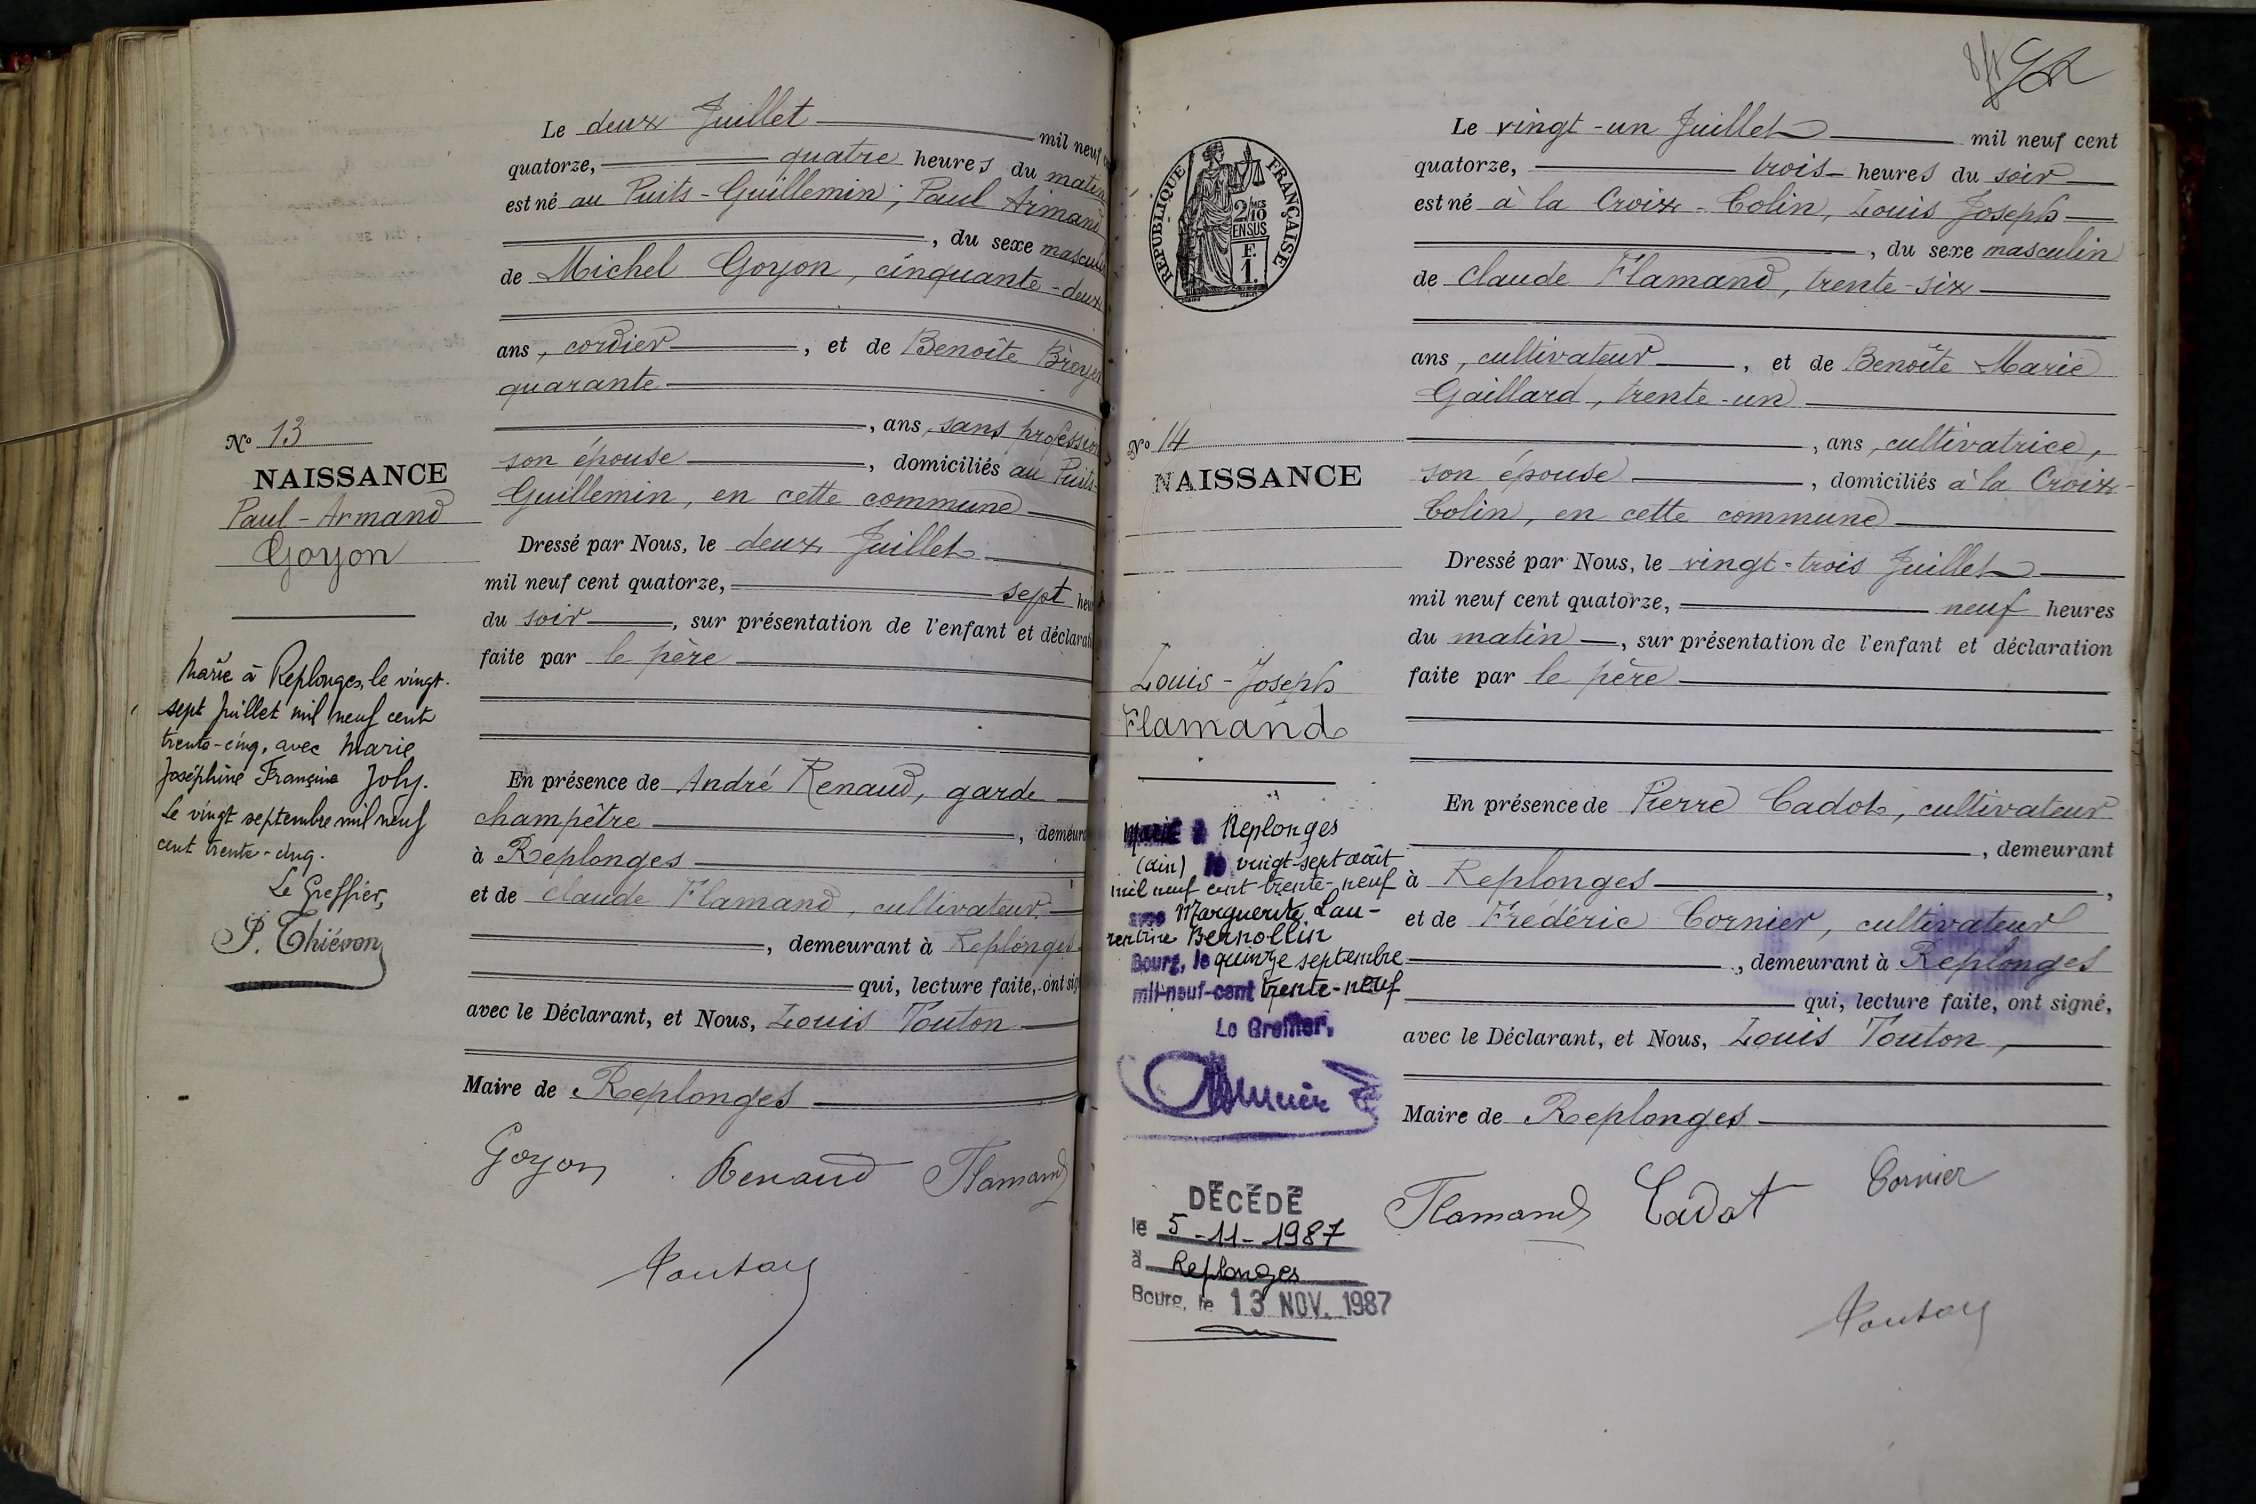 Le deux Juillet mil neuf
quatorze, quatre heures du matin
est né au Puits-Guillemin; Paul Armand
, du sexe masculin
de Michel Goyon, cinquante-deux
ans, cordier, et de Benoîte Broyer
quarante
, ans, sans profession
son épouse, domiciliés au Puits-
Guillemin, en cette commune
Dressé par Nous, le deux Juillet
mil neuf cent quatorze, sept heu
du soir, sur présentation de l'enfant et déclarati
faite par le père
En présence de André Renaud, garde
champêtre, demeura
à Replonges
et de Claude Flamand, cultivateur,
, demeurant à Replonges
qui, lecture faite, ont sig
avec le Déclarant, et Nous, Louis Touton
Maire de Replonges
Goyon Renaud Flamand
Touton
No 13
NAISSANCE
Paul-Armand
Goyon
Marié à Replonges, le vingt-
sept Juillet mil neuf cent
trente-cinq, avec Marie
Joséphine Françine Joly.
Le vingt septembre mil neuf
cent trente-cinq.
Le Greffier,
P. Thiévon
RÉPUBLIQUE FRANÇAISE
2/10
EN SUS
F.
1.
Le vingt-un Juillet mil neuf cent
quatorze, trois heures du soir
est né à la Croix-Colin, Louis Joseph
, du sexe masculin
de Claude Flamand, trente-six
ans, cultivateur, et de Benoîte Marie
Gaillard, trente-un
, ans, cultivatrice,
son épouse, domiciliés à la Croix-
Colin, en cette commune
Dressé par Nous, le vingt-trois Juillet
mil neuf cent quatorze, neuf heures
du matin, sur présentation de l'enfant et déclaration
faite par le père
En présence de Pierre Cadot, cultivateur
, demeurant
à Replonges,
et de Frédéric Cornier, cultivateur
, demeurant à Replonges
qui, lecture faite, ont signé,
avec le Déclarant, et Nous, Louis Touton,
Maire de Replonges
Flamand Cadot Cornier
Touton
No 14
NAISSANCE
Louis-Joseph
Flamand
Marié à Replonges
(Ain) le vingt-sept août
mil neuf cent trente-neuf
avec Marguerite Lau-
rentine Bernollin
Bourg, le quinze septembre
mil-neuf-cent trente-neuf
Le Greffier,
DÉCÉDÉ
le 5-11-1987
à Replonges
Bourg, le 13 NOV. 1987